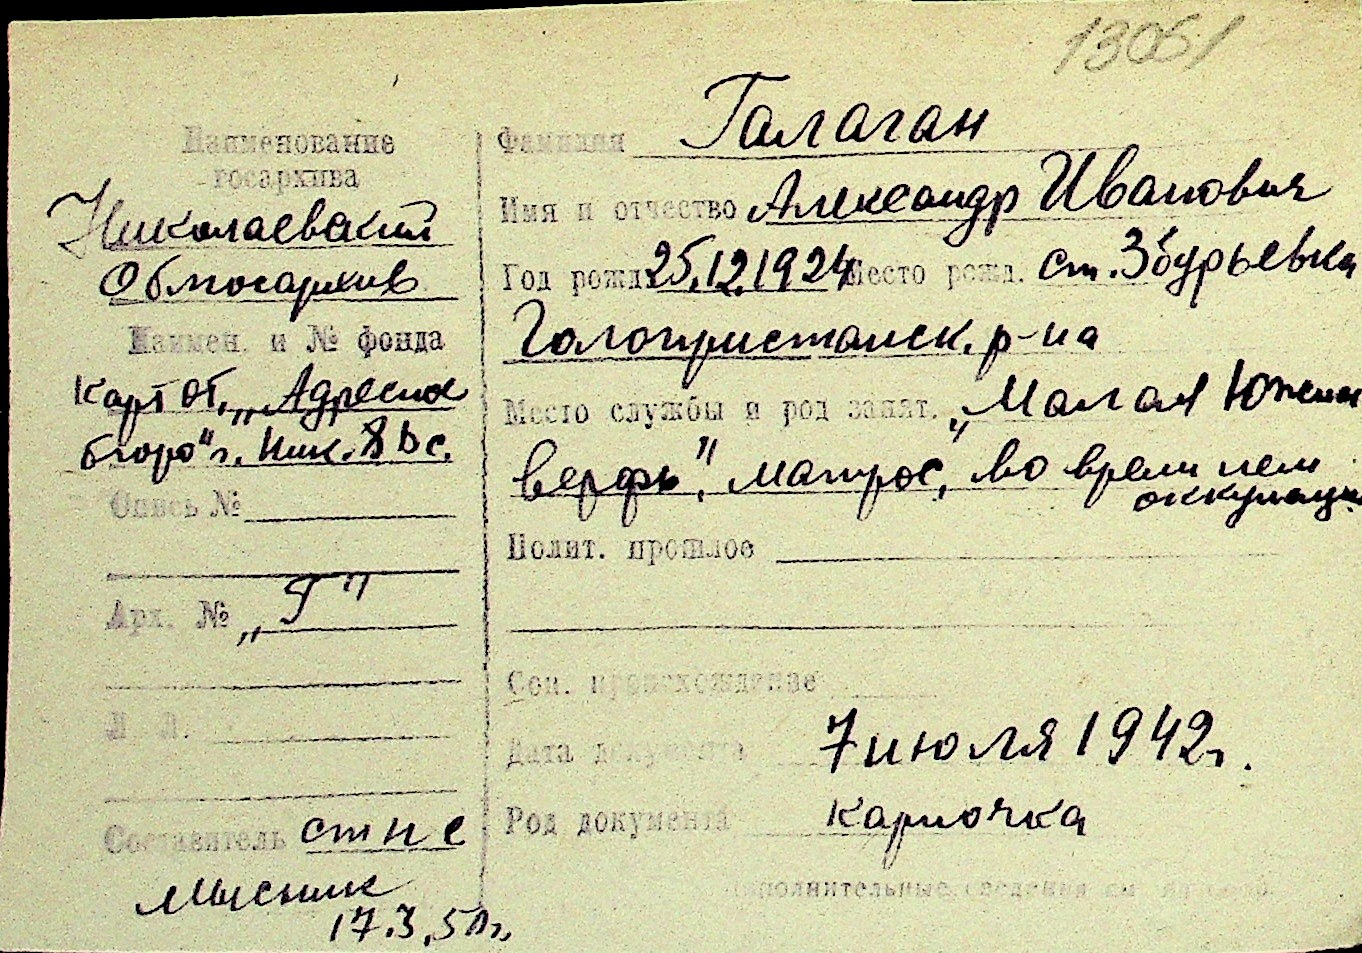 13051
Наименование
госархива
Николаевский
Облгосархив
Наимен. и № фонда
Карт от. „Адресное
бюро" г. Ник.
Опись №
Арх. № „Г"
Л. Л.
Составитель ст н с
Мысник
17.3.50г.
Фамилия Галаган
Имя и отчество Александр Иванович
Год рожд. 25.12.1924 Место рожд. ст. Збурьевка
Голопристанск. р-на
Место службы и род занят. „Малая Южная
верфь", матрос, во время нем
оккупации
Полит. прошлое
Соц. происхождение
Дата документа 7 июля 1942г.
Род документа карточка
Дополнительные сведения см.